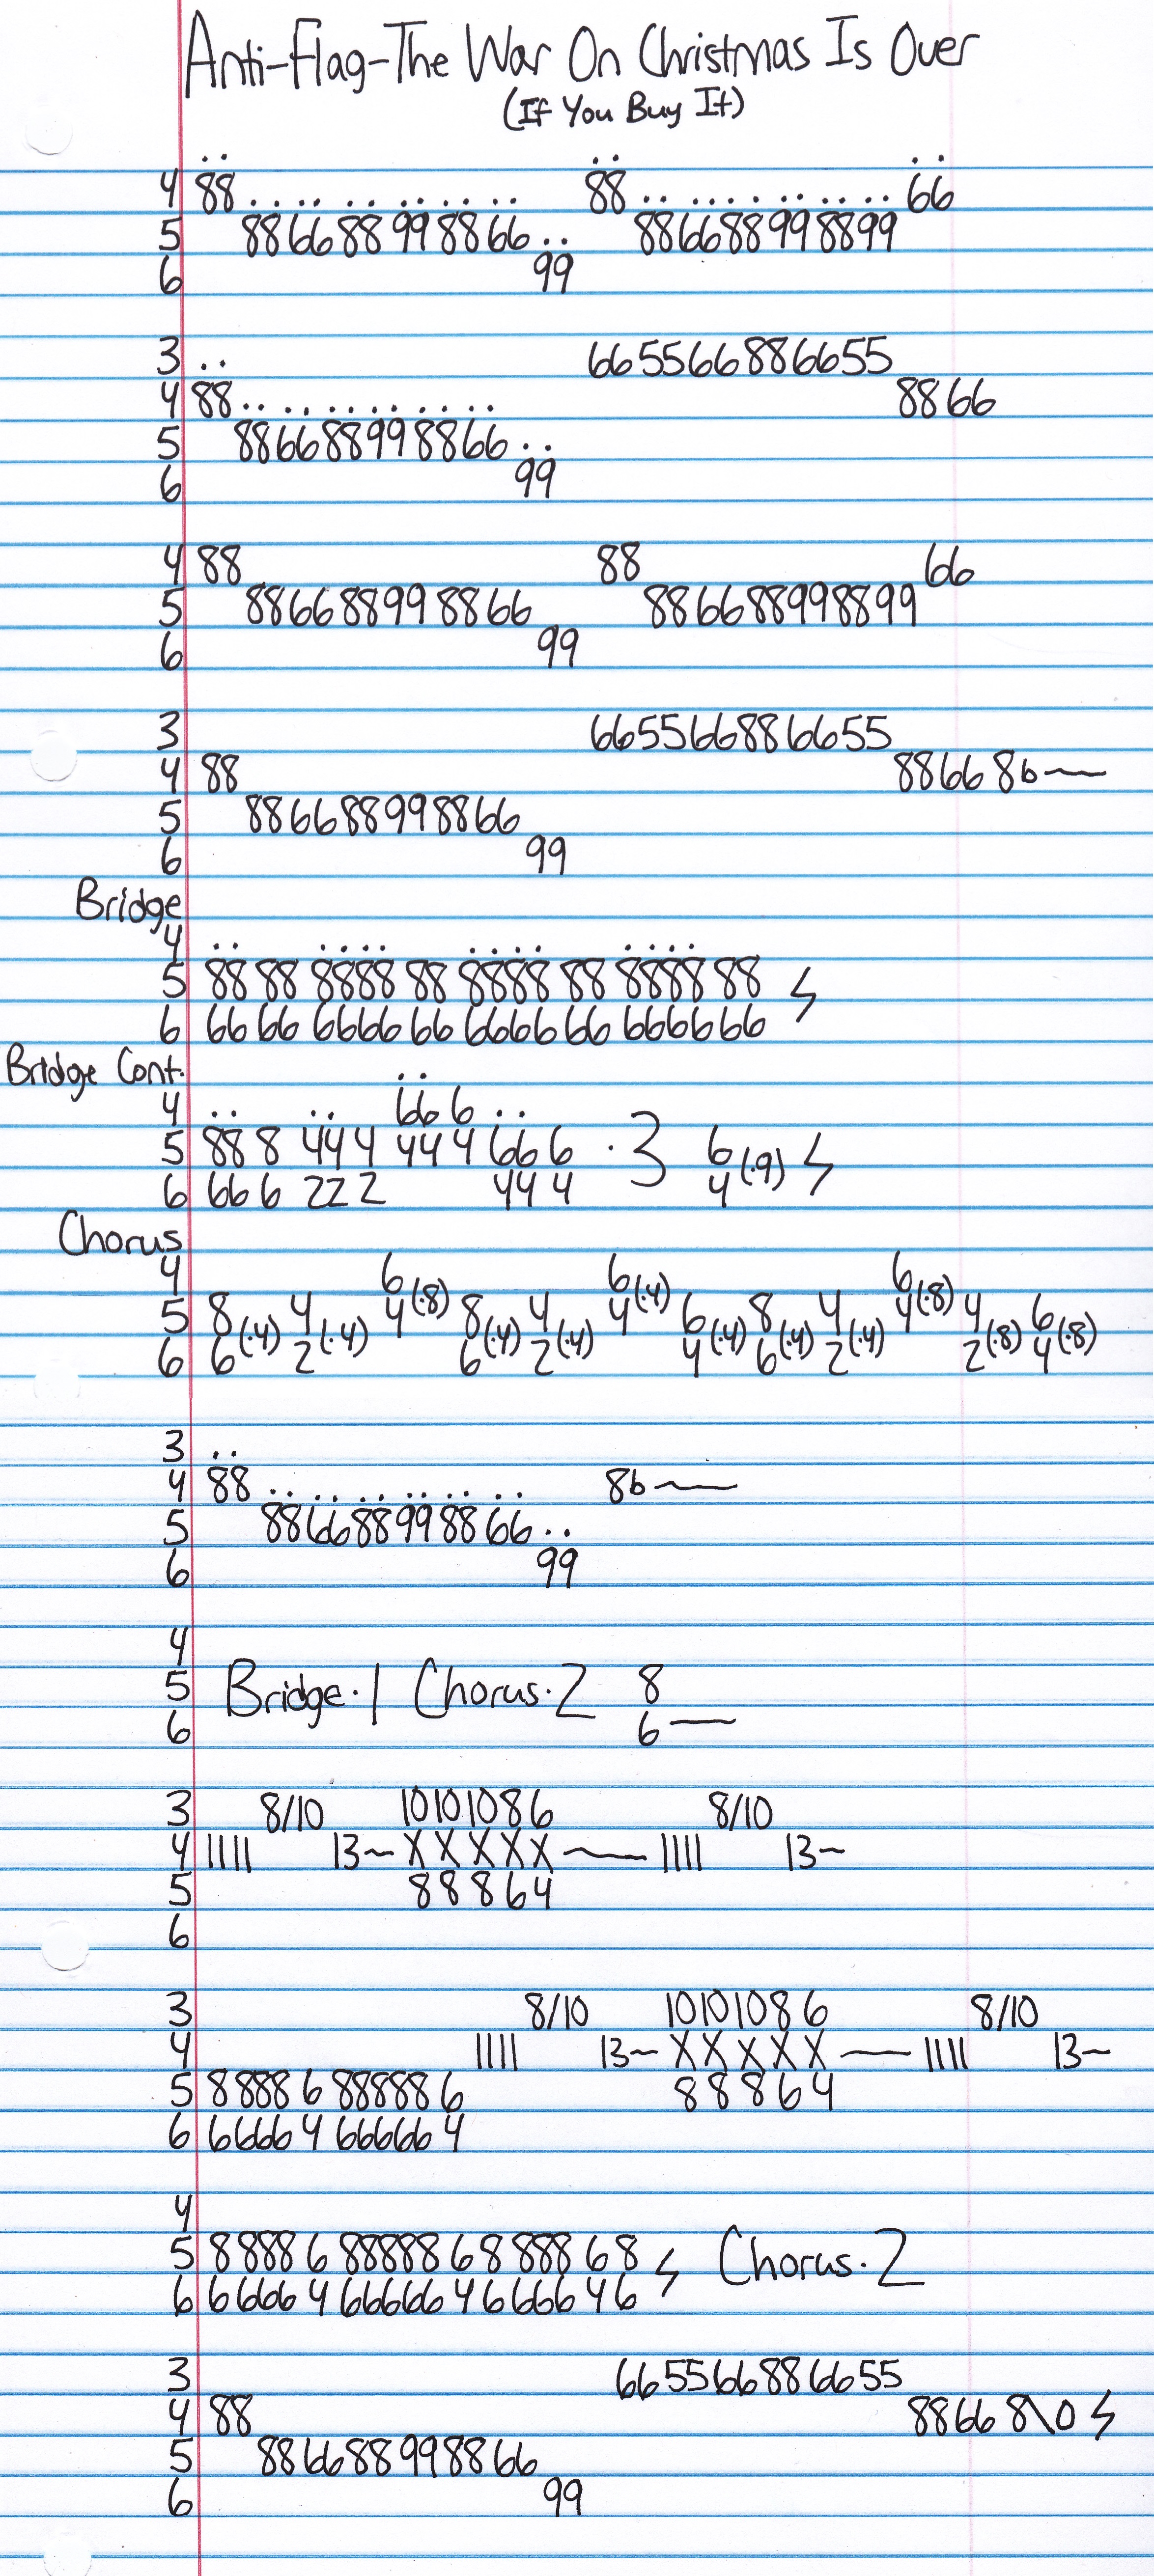 Anti-Flag-The War On Christmas Is Over
(If You Buy It)
4 88 88 66
5 886688998866 886688998899
6 99
3 665566886655
4 88 8866
5 886688998866
6 99
4 88 88 66
5 886688998866 886688998899
6 99
3 665566886655
4 88 8866 8b~
5 886688998866
6 99
Bridge
4
5 88 88 8888 88 8888 88 8888 88
6 66 66 6666 66 6666 66 6666 66
Bridge Cont.
4 66 6
5 88 8 44 4 44 4 66 6 ·3 6
6 66 6 22 2 44 4 4(·9)
Chorus
4 6 6 6
5 8 4 4(·8) 8 4 4(·4) 6 8 4 4(·8) 4 6
6 6(·4) 2(·4) 6(·4) 2(·4) 4(·4) 6(·4) 2(·4) 2(·8) 4(·8)
3
4 88 8b~
5 886688998866
6 99
4
5 Bridge·1 Chorus·2 8
6 6~
3 8/10 10 10 10 8 6 8/10
4 1111 13~ X X X X X ~ 1111 13~
5 8 8 8 6 4
6
3 8/10 10 10 10 8 6 8/10
4 1111 13~ X X X X X ~ 1111 13~
5 8 888 6 88888 6 8 8 8 6 4
6 6 666 4 66666 4
4
5 8 888 6 88888 6 8 888 6 8 Chorus·2
6 6 666 4 66666 4 6 666 4 6
3 665566886655
4 88 8866 8\0
5 886688998866
6 99